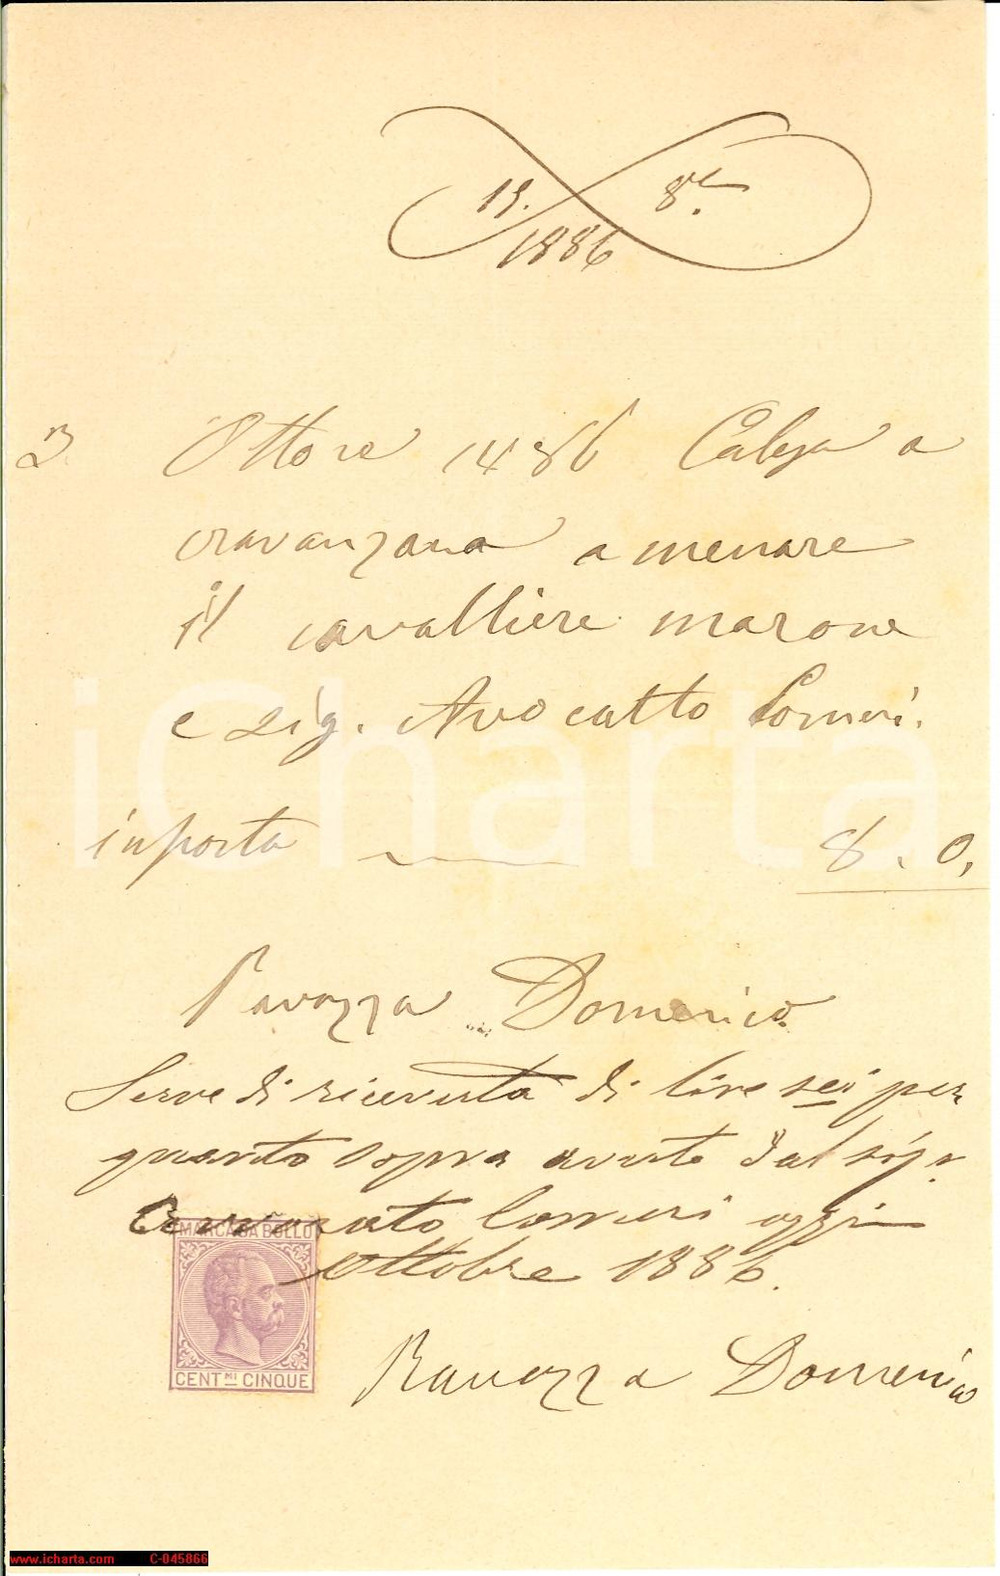 19. 8re
1886
3 Ottore 1886 Calesa a
cravanzana a menare
il cavalliere marone
e sig. Avocatto
inporta 8. 0,
Ravazza Domenico
Serve di ricevuta di lire sei per
quanto sopra avute dal sigr
oggi
Ottobre 1886.
MARCA DA BOLLO
CENTMI CINQUE
Ravazza Domenico
iCharta
www.icharta.com C-045866